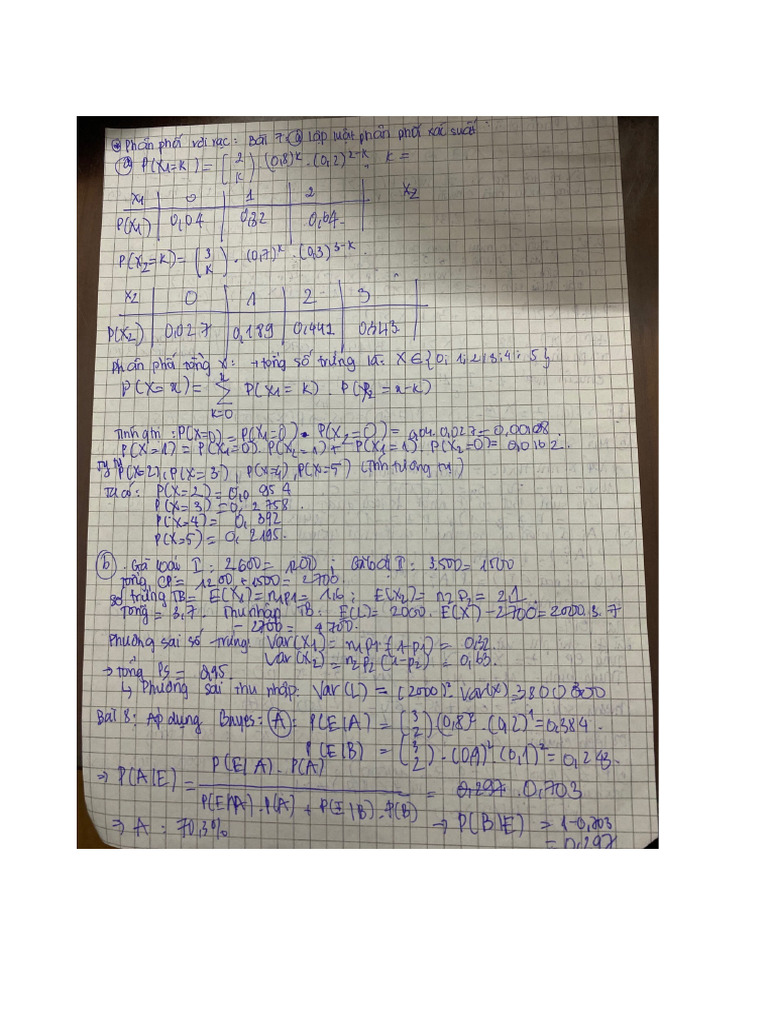 * Phân phối rời rạc: Bài 7: a) lập luật phân phối xác suất
a) P(X1=k) = (2 k) (0,8)^k . (0,2)^2-k k =
X1 | 0 | 1 | 2 X2
P(X1) | 0,04 | 0,32 | 0,64
P(X2=k) = (3 k) . (0,7)^k . (0,3)^3-k
X2 | 0 | 1 | 2 | 3
P(X2) | 0,027 | 0,189 | 0,441 | 0,343
phân phối tổng X: → tổng số trứng là: X ∈ {0; 1; 2; 3; 4; 5}
P(X=x) = Σ k=0 2 P(X1=k) . P(X2=x-k)
P(X=0) = P(X1=0) . P(X2=0) = 0,04.0,027 = 0,00108
P(X=1) = P(X1=0). P(X2=1) + P(X1=1). P(X2=0) = 0,0162.
P(X=2), P(X=3), P(X=4), P(X=5) (tính tương tự)
Ta có: P(X=2) = 0,0954
P(X=3) = 0,2758
P(X=4) = 0,392
P(X=5) = 0,2195.
b) Gà loại I: 2.600 = 1200; II: 3.500 = 1500
tổng CP = 1200 + 1500 = 2700
số trứng TB = E(X1) = n1p1 = 1,6; E(X2) = n2p2 = 2,1
tổng = 3,7. Thu nhập TB: E(L) = 2000. E(X) - 2700 = 2000.3.7
- 2700 = 4700.
Phương sai số trứng: Var(X1) = n1p1.(1-p1) = 0,32.
Var(X2) = n2p2 (1-p2) = 0,63.
→ tổng PS = 0,95.
↳ Phương sai thu nhập: Var(L) = (2000)². Var(X) 3800000
Bài 8: Áp dụng Bayes: A: P(E|A) = (3 2)(0,8)².(0,2)^1 = 0,384.
P(E|B) = (3 2).(0,9)²(0,1)² = 0,243.
⇒ P(A|E) = P(E|A). P(A) / P(E|A).P(A) + P(E|B).P(B) = 0,297 0,703
⇒ A: 70,3% → P(B|E) = 1-0,703
= 0,297